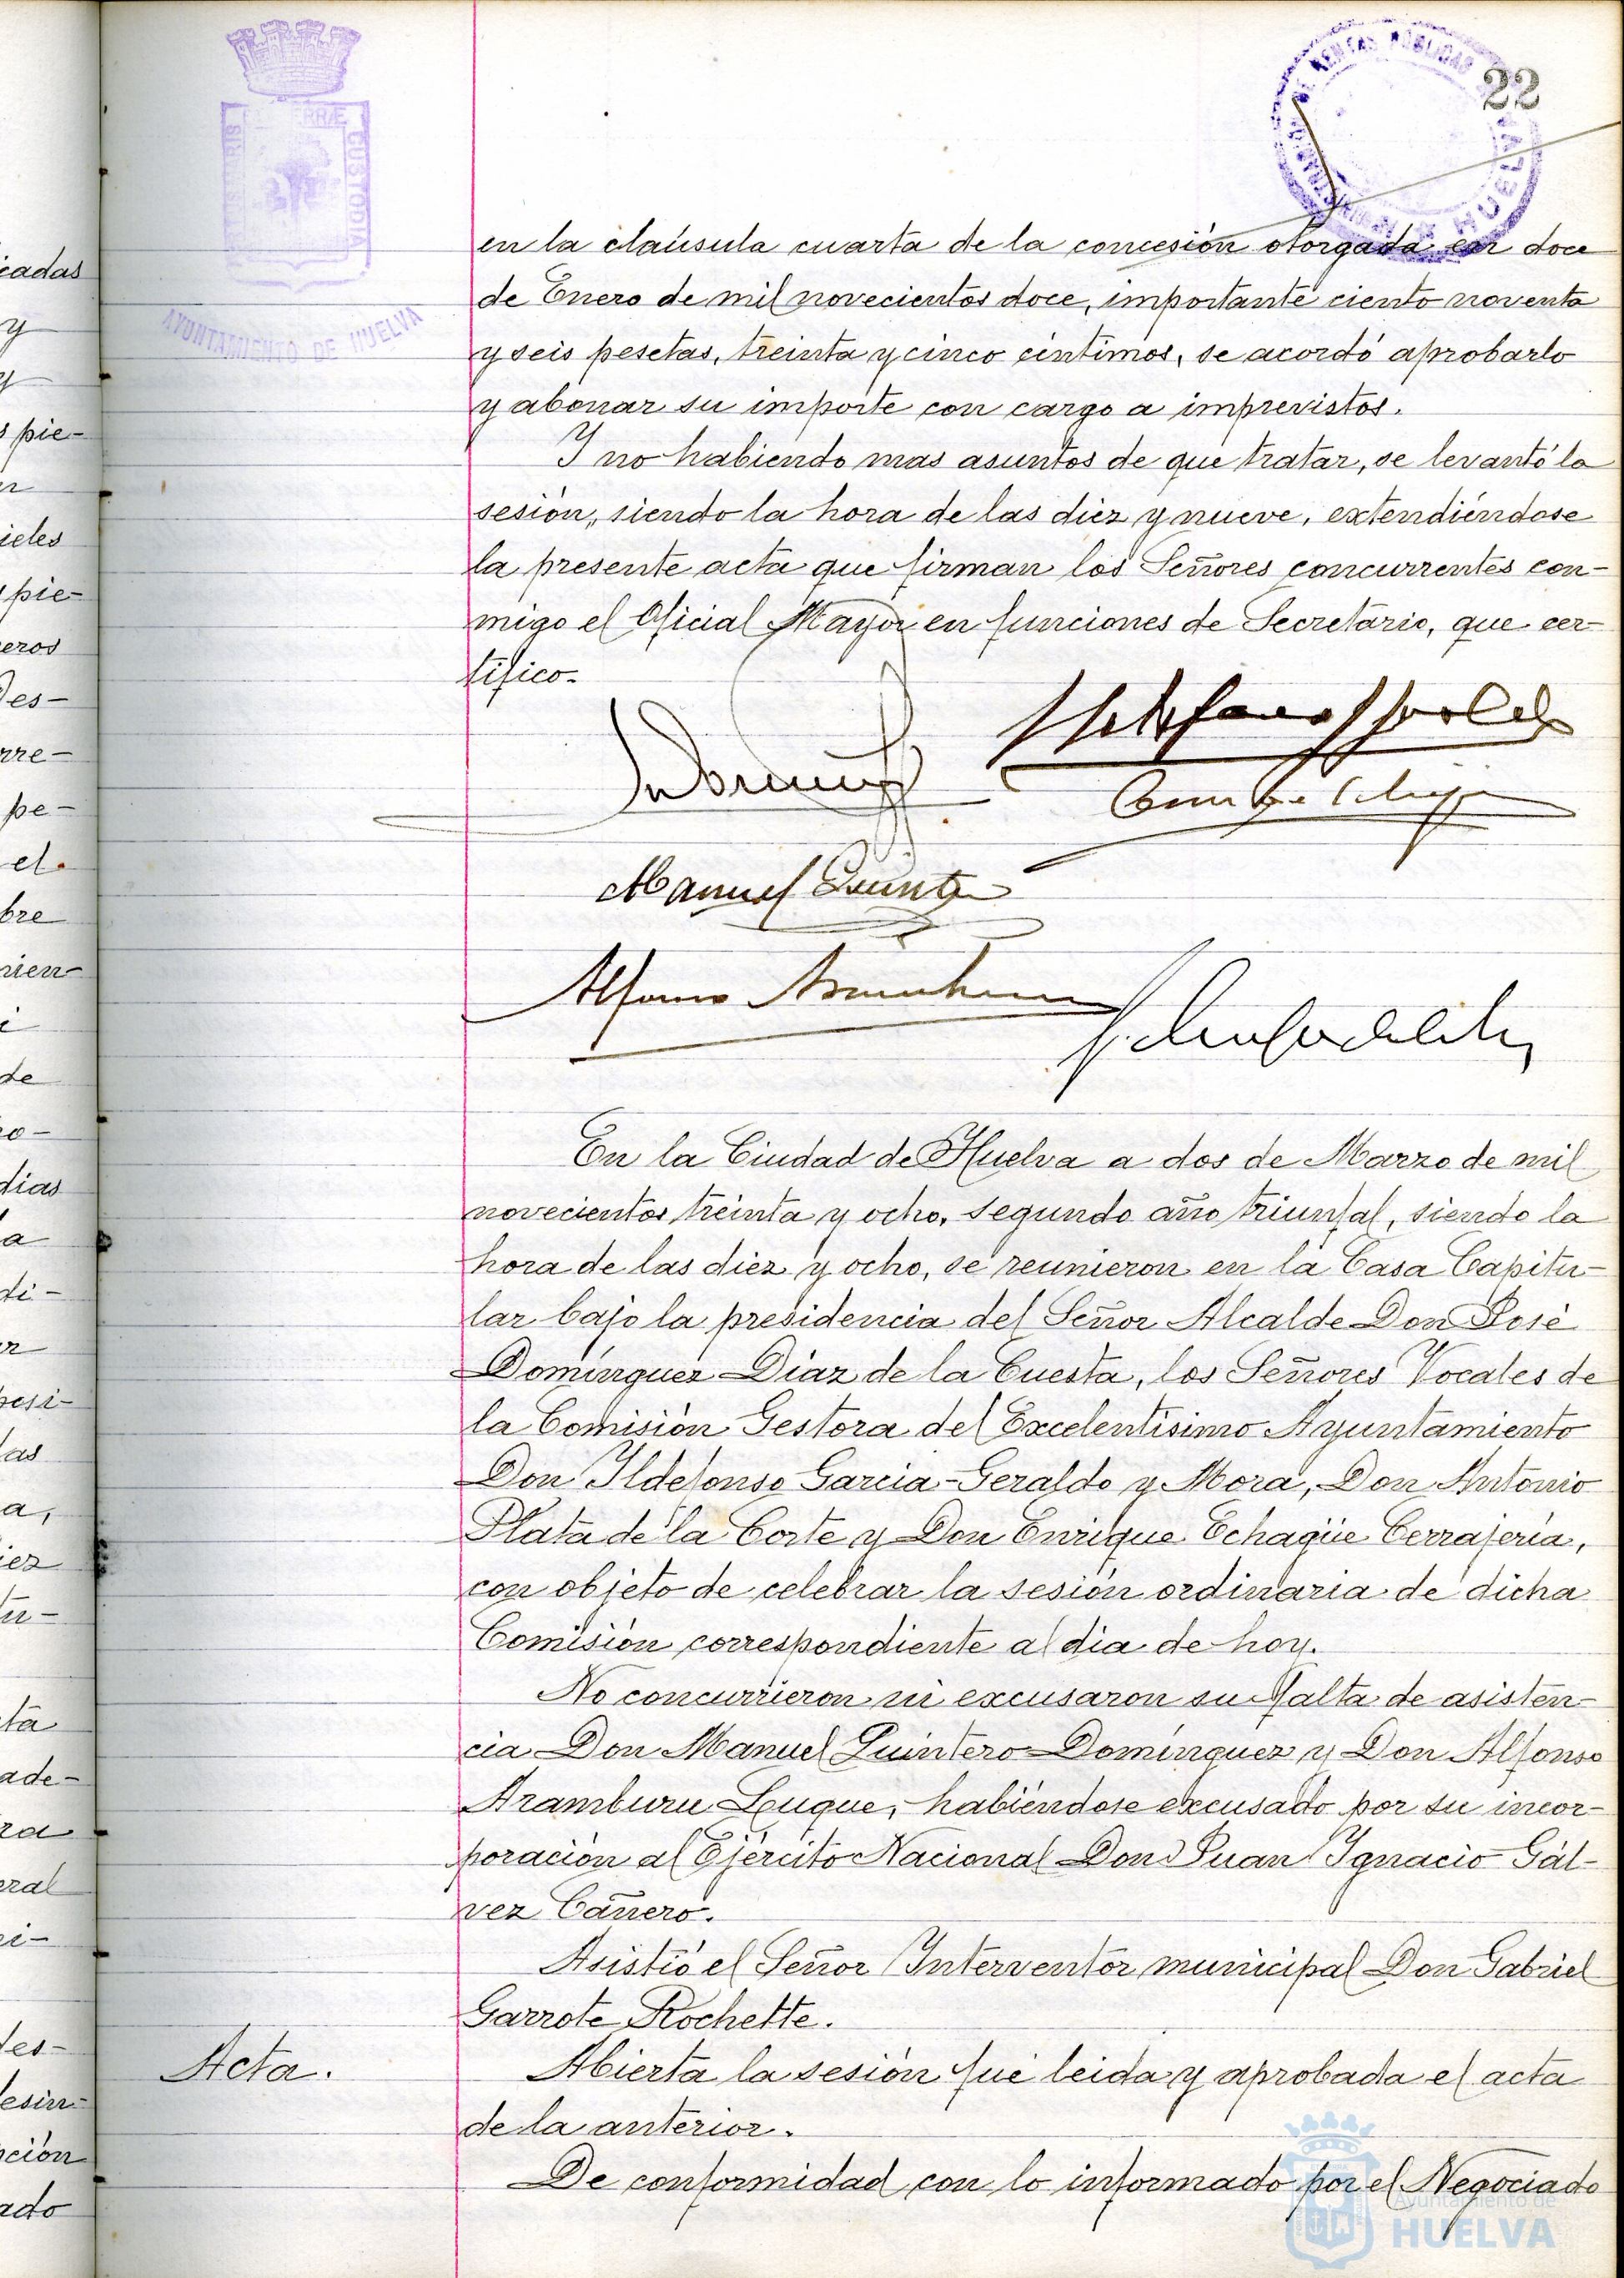 22
AYUNTAMIENTO DE HUELVA
CUSTODIA
DE RENTAS PUBLICAS
HUELVA
en la claúsula cuarta de la concesión otorgada en doce
de Enero de mil novecientos doce, importante ciento noventa
y seis pesetas, treinta y cinco céntimos, se acordó aprobarlo
y abonar su importe con cargo a imprevistos.
Y no habiendo mas asuntos de que tratar, se levantó la
sesión, siendo la hora de las diez y nueve, extendiéndose
la presente acta que firman los Señores concurrentes con-
migo el Oficial Mayor en funciones de Secretario, que cer-
tifico.
Manuel Quintero
Alfonso Aramburu
En la Ciudad de Huelva a dos de Marzo de mil
novecientos treinta y ocho, segundo año triunfal, siendo la
hora de las diez y ocho, se reunieron en la Casa Capitu-
lar bajo la presidencia del Señor Alcalde Don José
Domínguez Díaz de la Cuesta, los Señores Vocales de
la Comisión Gestora del Excelentísimo Ayuntamiento
Don Ildefonso García-Geraldo y Mora, Don Antonio
Plata de la Corte y Don Enrique Echagüe Cerrajería,
con objeto de celebrar la sesión ordinaria de dicha
Comisión correspondiente al día de hoy.
No concurrieron ni excusaron su falta de asisten-
cia Don Manuel Quintero Domínguez y Don Alfonso
Aramburu Luque, habiéndose excusado por su incor-
poración al Ejército Nacional Don Juan Ignacio Gál-
vez Cañero.
Asistió el Señor Interventor municipal Don Gabriel
Garrote Rochette.
Acta.
Abierta la sesión fué leida y aprobada el acta
de la anterior.
De conformidad con lo informado por el Negociado
Ayuntamiento de
HUELVA